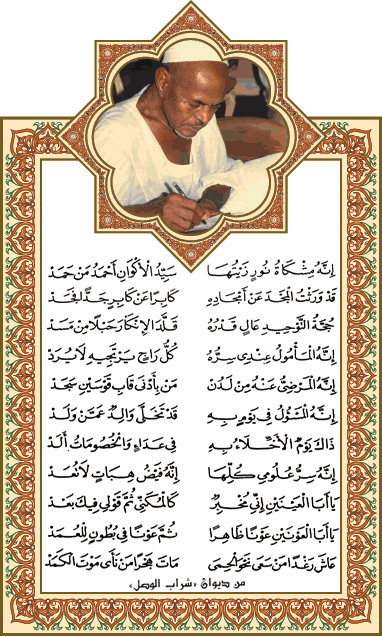 إِنَّهُ مِشْكَاةُ نُورٍ زَيْتُهَا سَيِّدُ الْأَكْوَانِ أَحْمَدُ مَنْ حَمَدْ
قَدْ وَرَثْتُ الْمَجْدَ عَنْ أَمْجَادِهِ كَابِرًا عَنْ كَابِرٍ جَدًّا لِجَدْ
حُجَّةُ التَّوْحِيدِ عَالٍ قَدْرُهُ قَلَّدَ الْإِنْكَارَ حَبْلًا مِنْ مَسَدْ
إِنَّهُ الْمَأْمُولُ عِنْدِي سِرُّهُ كُلُّ رَاجٍ يَرْتَجِيهِ لَا يُرَدْ
إِنَّهُ الْمَرْضِيُّ عَنْهُ مِنْ لَدُنْ مَنْ بِأَدْنَى قَابِ قَوْسَيْنِ سَجَدْ
إِنَّهُ الْمَسْؤُلُ فِي يَوْمٍ بِهِ قَدْ تَخَلَّى وَالِدٌ عَمَّنْ وَلَدْ
ذَاكَ يَوْمُ الْأَخِلَّاءُ بِهِ فِي عِدَاءٍ وَالْخُصُومَاتُ أَلَدْ
إِنَّهُ سِرُّ عُلُومِي كُلِّهَا إِنَّهُ فَيْضُ هِبَاتٍ لَا تُعَدْ
يَا أَبَا الْعَيْنَيْنِ إِنِّي مُخْبِرٌ كَالْمُكَنَّى ثُمَّ قَوْلِي فِيكَ بَعَدْ
يَا أَبَا الْعَوْنَيْنِ عَوْنًا ظَاهِرًا ثُمَّ عَوْنًا فِي بُطُونٍ لِلْعُمَدْ
عَاشَ رَغْدًا مَنْ سَعَى نَحْوَ الْحِمَى مَاتَ هَجْرًا مَنْ نَأَى مَوْتَ الْكَمَدْ
من ديوان «شراب الوصل»